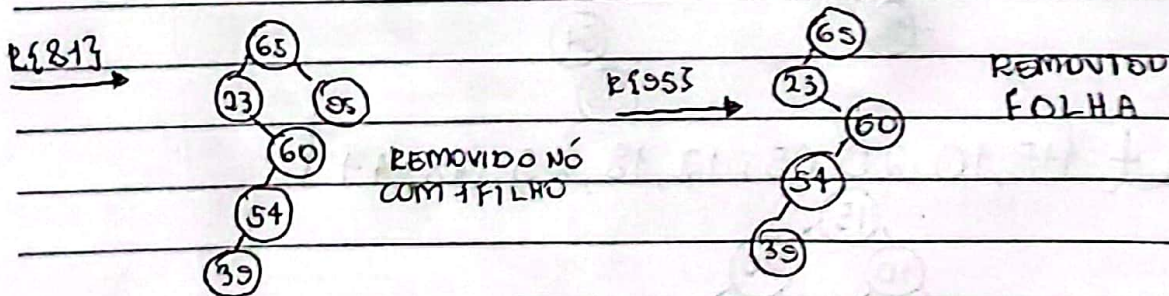 R{81}
65
23 95
60
54
39
REMOVIDO NÓ
COM 1 FILHO
R{95}
65
23
60
54
39
REMOVIDO
FOLHA